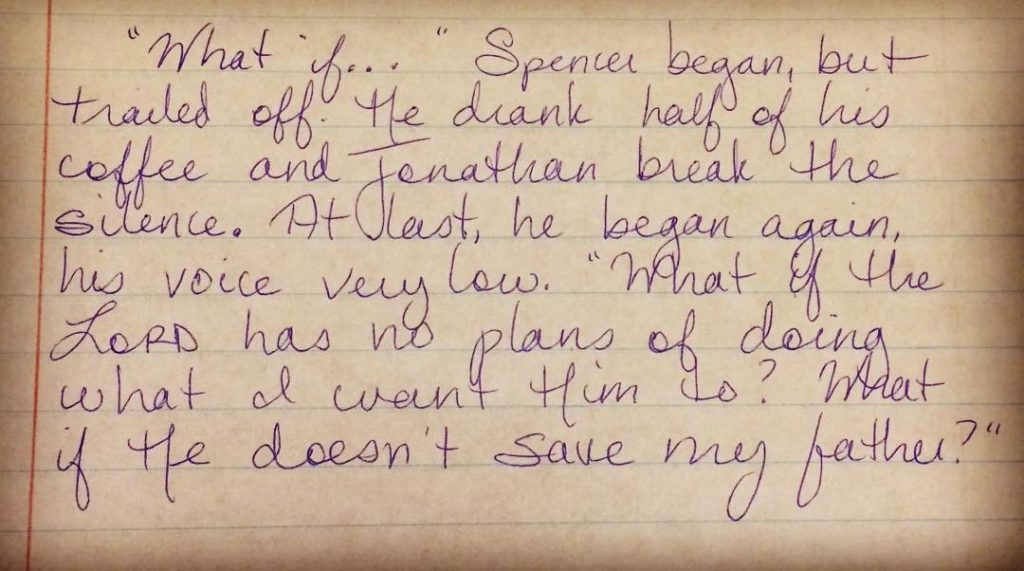 "What if..." Spencer began, but
trailed off. He drank half of his
coffee and Jonathan break the
silence. At last, he began again,
his voice very low. "What if the
LORD has no plans of doing
what I want Him to? What
if He doesn't save my father?"